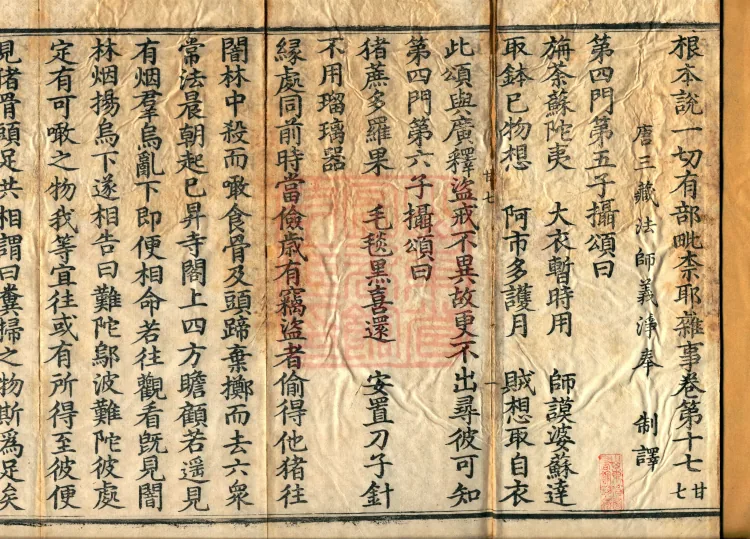 根本說一切有部毗柰耶雜事卷第十七 廿七
唐三藏法師義淨奉 制譯
第四門第五子攝頌曰
旃荼蘇陀夷 大衣暫時用 師謨婆蘇達
取鉢已物想 阿市多護月 賊想取自衣
廿七 一
此頌與廣釋盜戒不異故更不出尋彼可知
第四門第六子攝頌曰
猪蔗多羅果 毛毯黑喜還 安置刀子針
不用瑠璃器
緣處同前時當儉歲有竊盜者偷得他猪往
闇林中殺而噉食骨及頭蹄棄擲而去六衆
常法晨朝起已昇寺閣上四方瞻顧若遥見
有烟羣烏亂下即便相命若往觀看旣見闇
林烟揚烏下遂相告曰難陀鄔波難陀彼處
定有可噉之物我等宜往或有所得至彼便
見猪骨頭足共相謂曰糞掃之物斯爲足矣